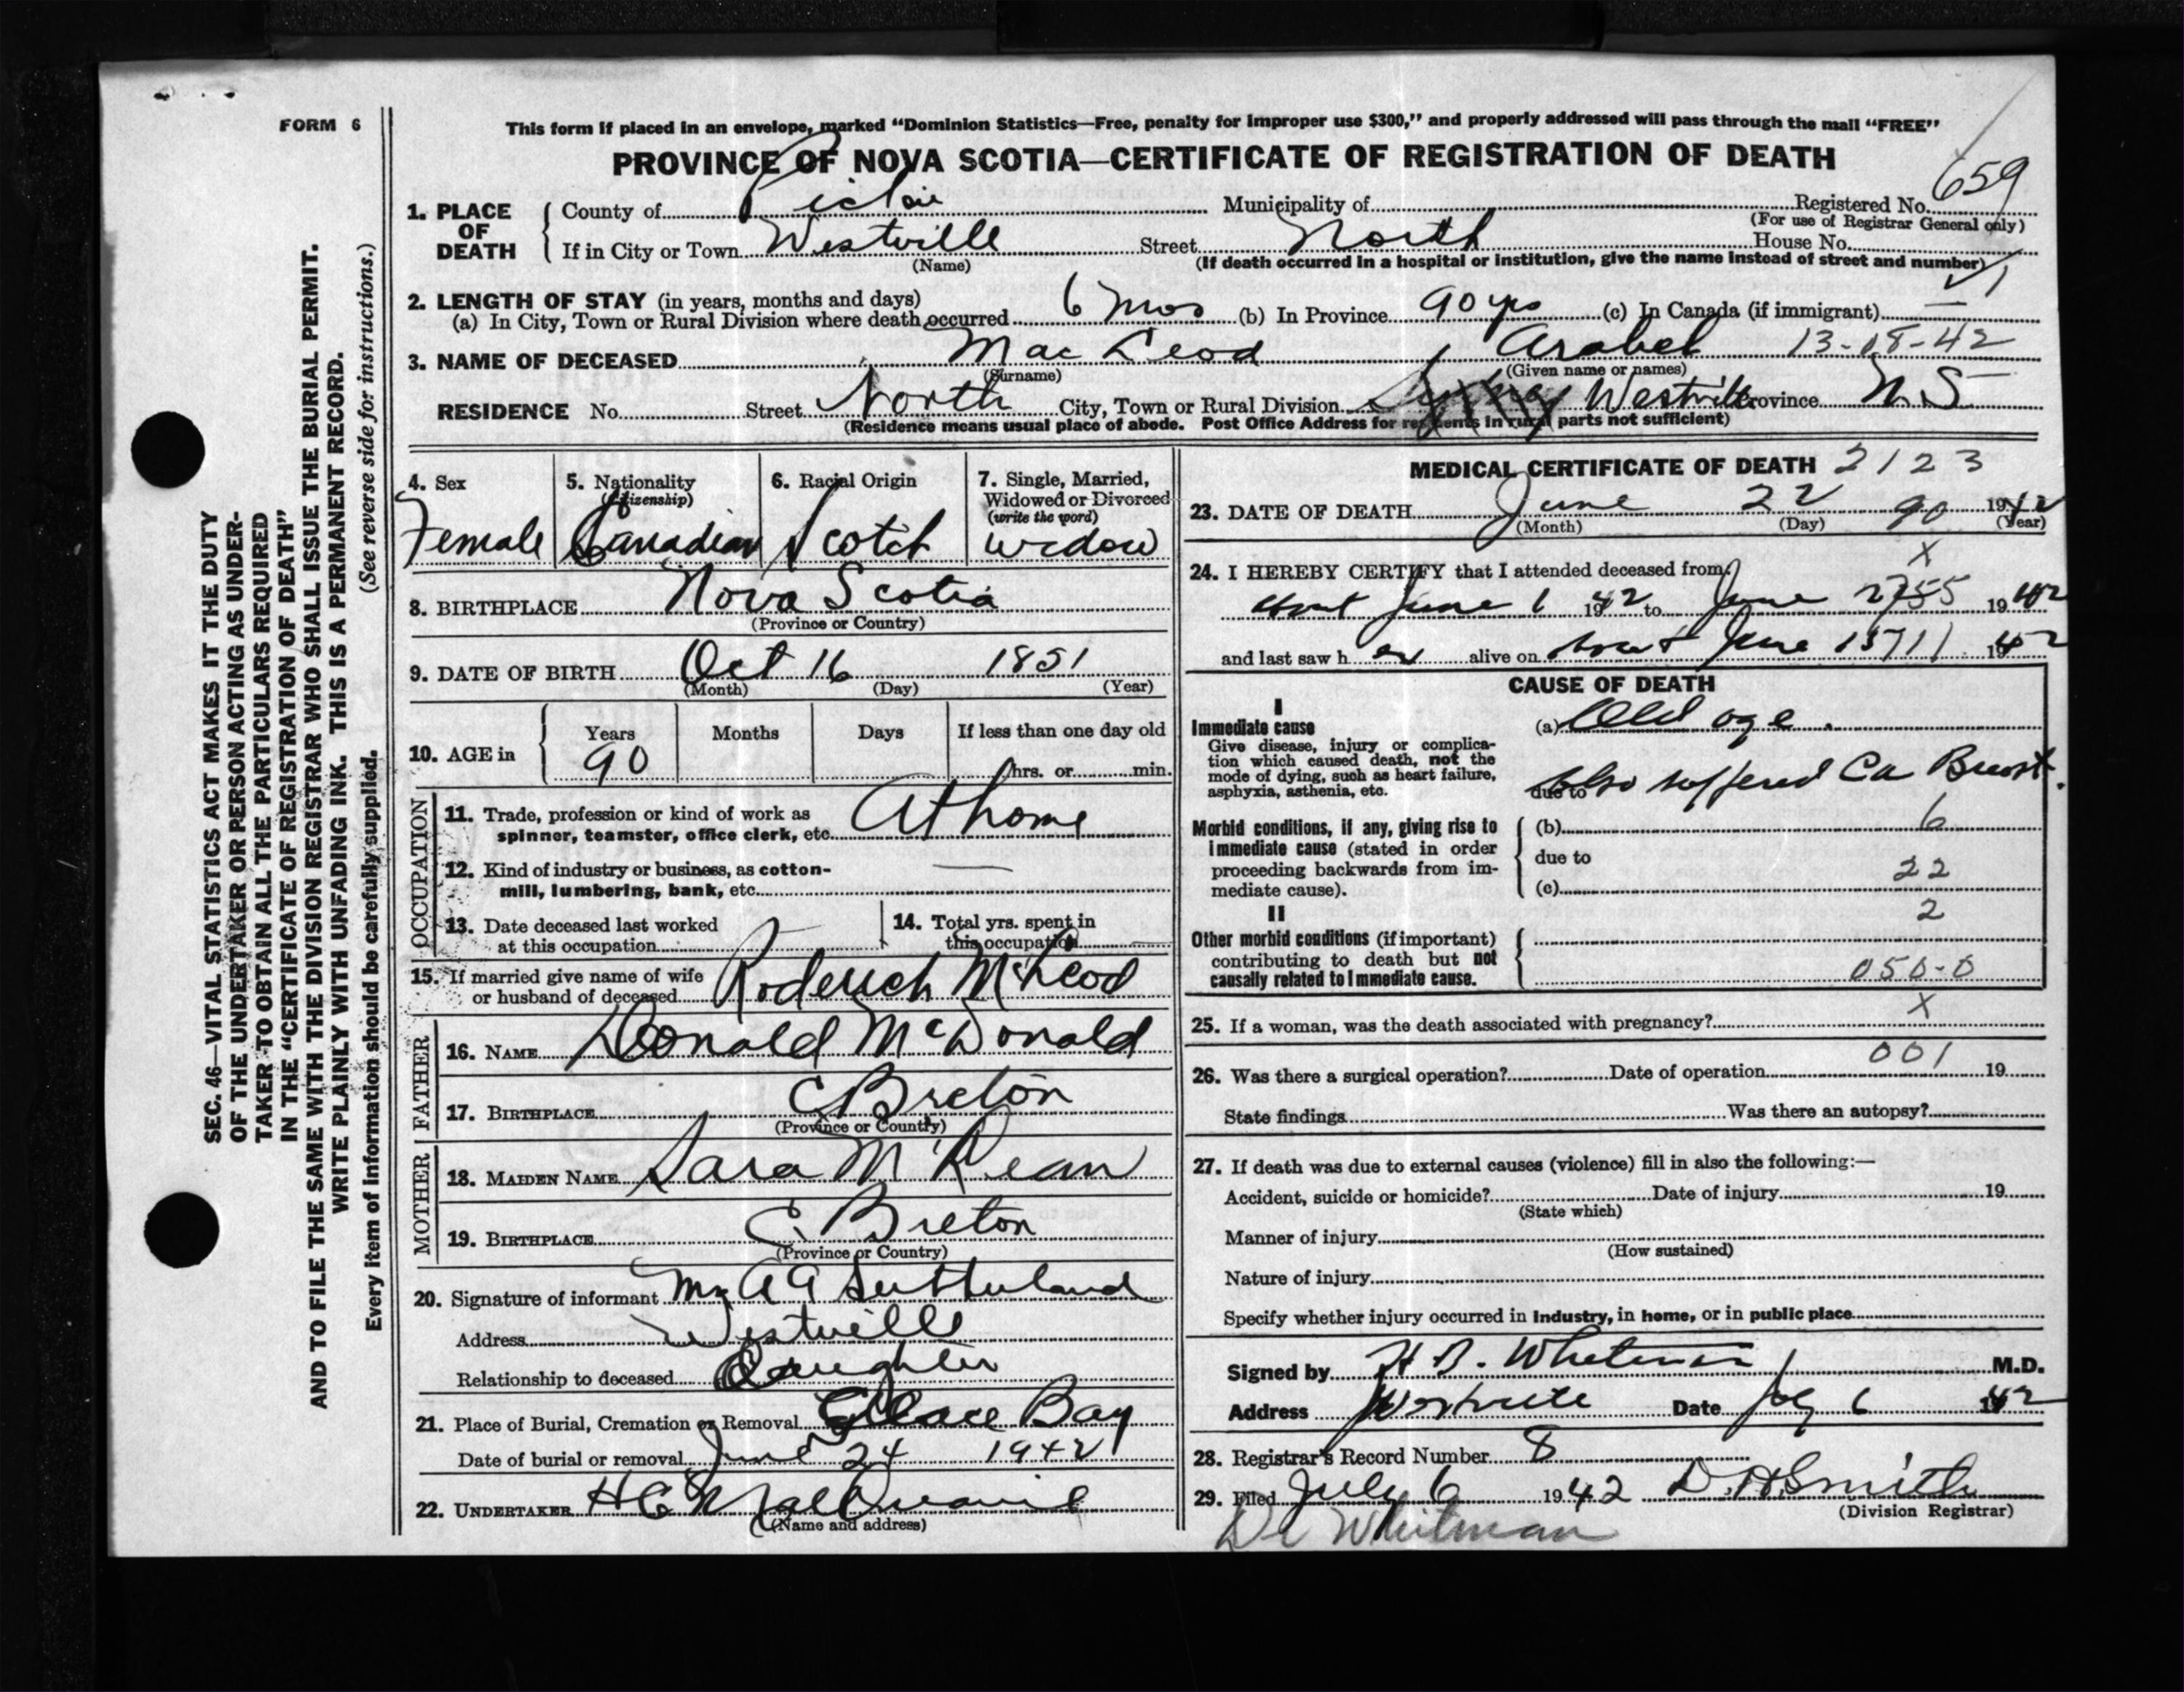 FORM 6
This form if placed in an envelope, marked “Dominion Statistics—Free, penalty for improper use $300,” and properly addressed will pass through the mail “FREE”
PROVINCE OF NOVA SCOTIA—CERTIFICATE OF REGISTRATION OF DEATH
659
1. PLACE OF DEATH
County of Pictou Municipality of Registered No.
(For use of Registrar General only)
If in City or Town Westville Street North House No.
(Name) (If death occurred in a hospital or institution, give the name instead of street and number)
2. LENGTH OF STAY (in years, months and days)
(a) In City, Town or Rural Division where death occurred 6 Mos (b) In Province 90 yrs (c) In Canada (if immigrant) —
3. NAME OF DECEASED Mac Leod Arabel 13-18-42
(Surname) (Given name or names)
RESIDENCE No. Street North City, Town or Rural Division Westville Province N S
(Residence means usual place of abode. Post Office Address for residents in rural parts not sufficient)
4. Sex
Female
5. Nationality
(Citizenship)
Canadian
6. Racial Origin
Scotch
7. Single, Married,
Widowed or Divorced
(write the word)
widow
8. BIRTHPLACE Nova Scotia
(Province or Country)
9. DATE OF BIRTH Oct 16 1851
(Month) (Day) (Year)
10. AGE in
Years Months Days If less than one day old
90 hrs. or min.
OCCUPATION
11. Trade, profession or kind of work as
spinner, teamster, office clerk, etc. At home
12. Kind of industry or business, as cotton-
mill, lumbering, bank, etc. —
13. Date deceased last worked
at this occupation
14. Total yrs. spent in
this occupation
15. If married give name of wife
or husband of deceased Roderick McLeod
FATHER
16. NAME Donald McDonald
17. BIRTHPLACE C Breton
(Province or Country)
MOTHER
18. MAIDEN NAME Sara McLean
19. BIRTHPLACE C. Breton
(Province or Country)
20. Signature of informant Mrs A G Sutherland
Address Westville
Relationship to deceased Daughter
21. Place of Burial, Cremation or Removal Glace Bay
Date of burial or removal June 24 1942
22. UNDERTAKER H C
(Name and address)
MEDICAL CERTIFICATE OF DEATH 2123
23. DATE OF DEATH June 22 90 1942
(Month) (Day) (Year)
x
24. I HEREBY CERTIFY that I attended deceased from
about June 1 1942 to June 1942
and last saw h er alive on about June 15 1942
CAUSE OF DEATH
I
Immediate cause
Give disease, injury or complica-
tion which caused death, not the
mode of dying, such as heart failure,
asphyxia, asthenia, etc.
(a) Old age.
due to Also suffered Ca Breast.
Morbid conditions, if any, giving rise to
immediate cause (stated in order
proceeding backwards from im-
mediate cause).
(b) 6
due to
(c) 22
2
II
Other morbid conditions (if important)
contributing to death but not
causally related to immediate cause.
050-0
x
25. If a woman, was the death associated with pregnancy?
001
26. Was there a surgical operation? Date of operation 19
State findings Was there an autopsy?
27. If death was due to external causes (violence) fill in also the following:—
Accident, suicide or homicide? Date of injury 19
(State which)
Manner of injury
(How sustained)
Nature of injury
Specify whether injury occurred in industry, in home, or in public place
Signed by H B. Whitman M.D.
Address Westville Date July 6 1942
28. Registrar's Record Number 8
29. Filed July 6 1942 D. H Smith
(Division Registrar)
Dr Whitman
SEC. 46—VITAL STATISTICS ACT MAKES IT THE DUTY
OF THE UNDERTAKER OR PERSON ACTING AS UNDER-
TAKER TO OBTAIN ALL THE PARTICULARS REQUIRED
IN THE “CERTIFICATE OF REGISTRATION OF DEATH”
AND TO FILE THE SAME WITH THE DIVISION REGISTRAR WHO SHALL ISSUE THE BURIAL PERMIT.
WRITE PLAINLY WITH UNFADING INK. THIS IS A PERMANENT RECORD.
Every item of information should be carefully supplied. (See reverse side for instructions.)